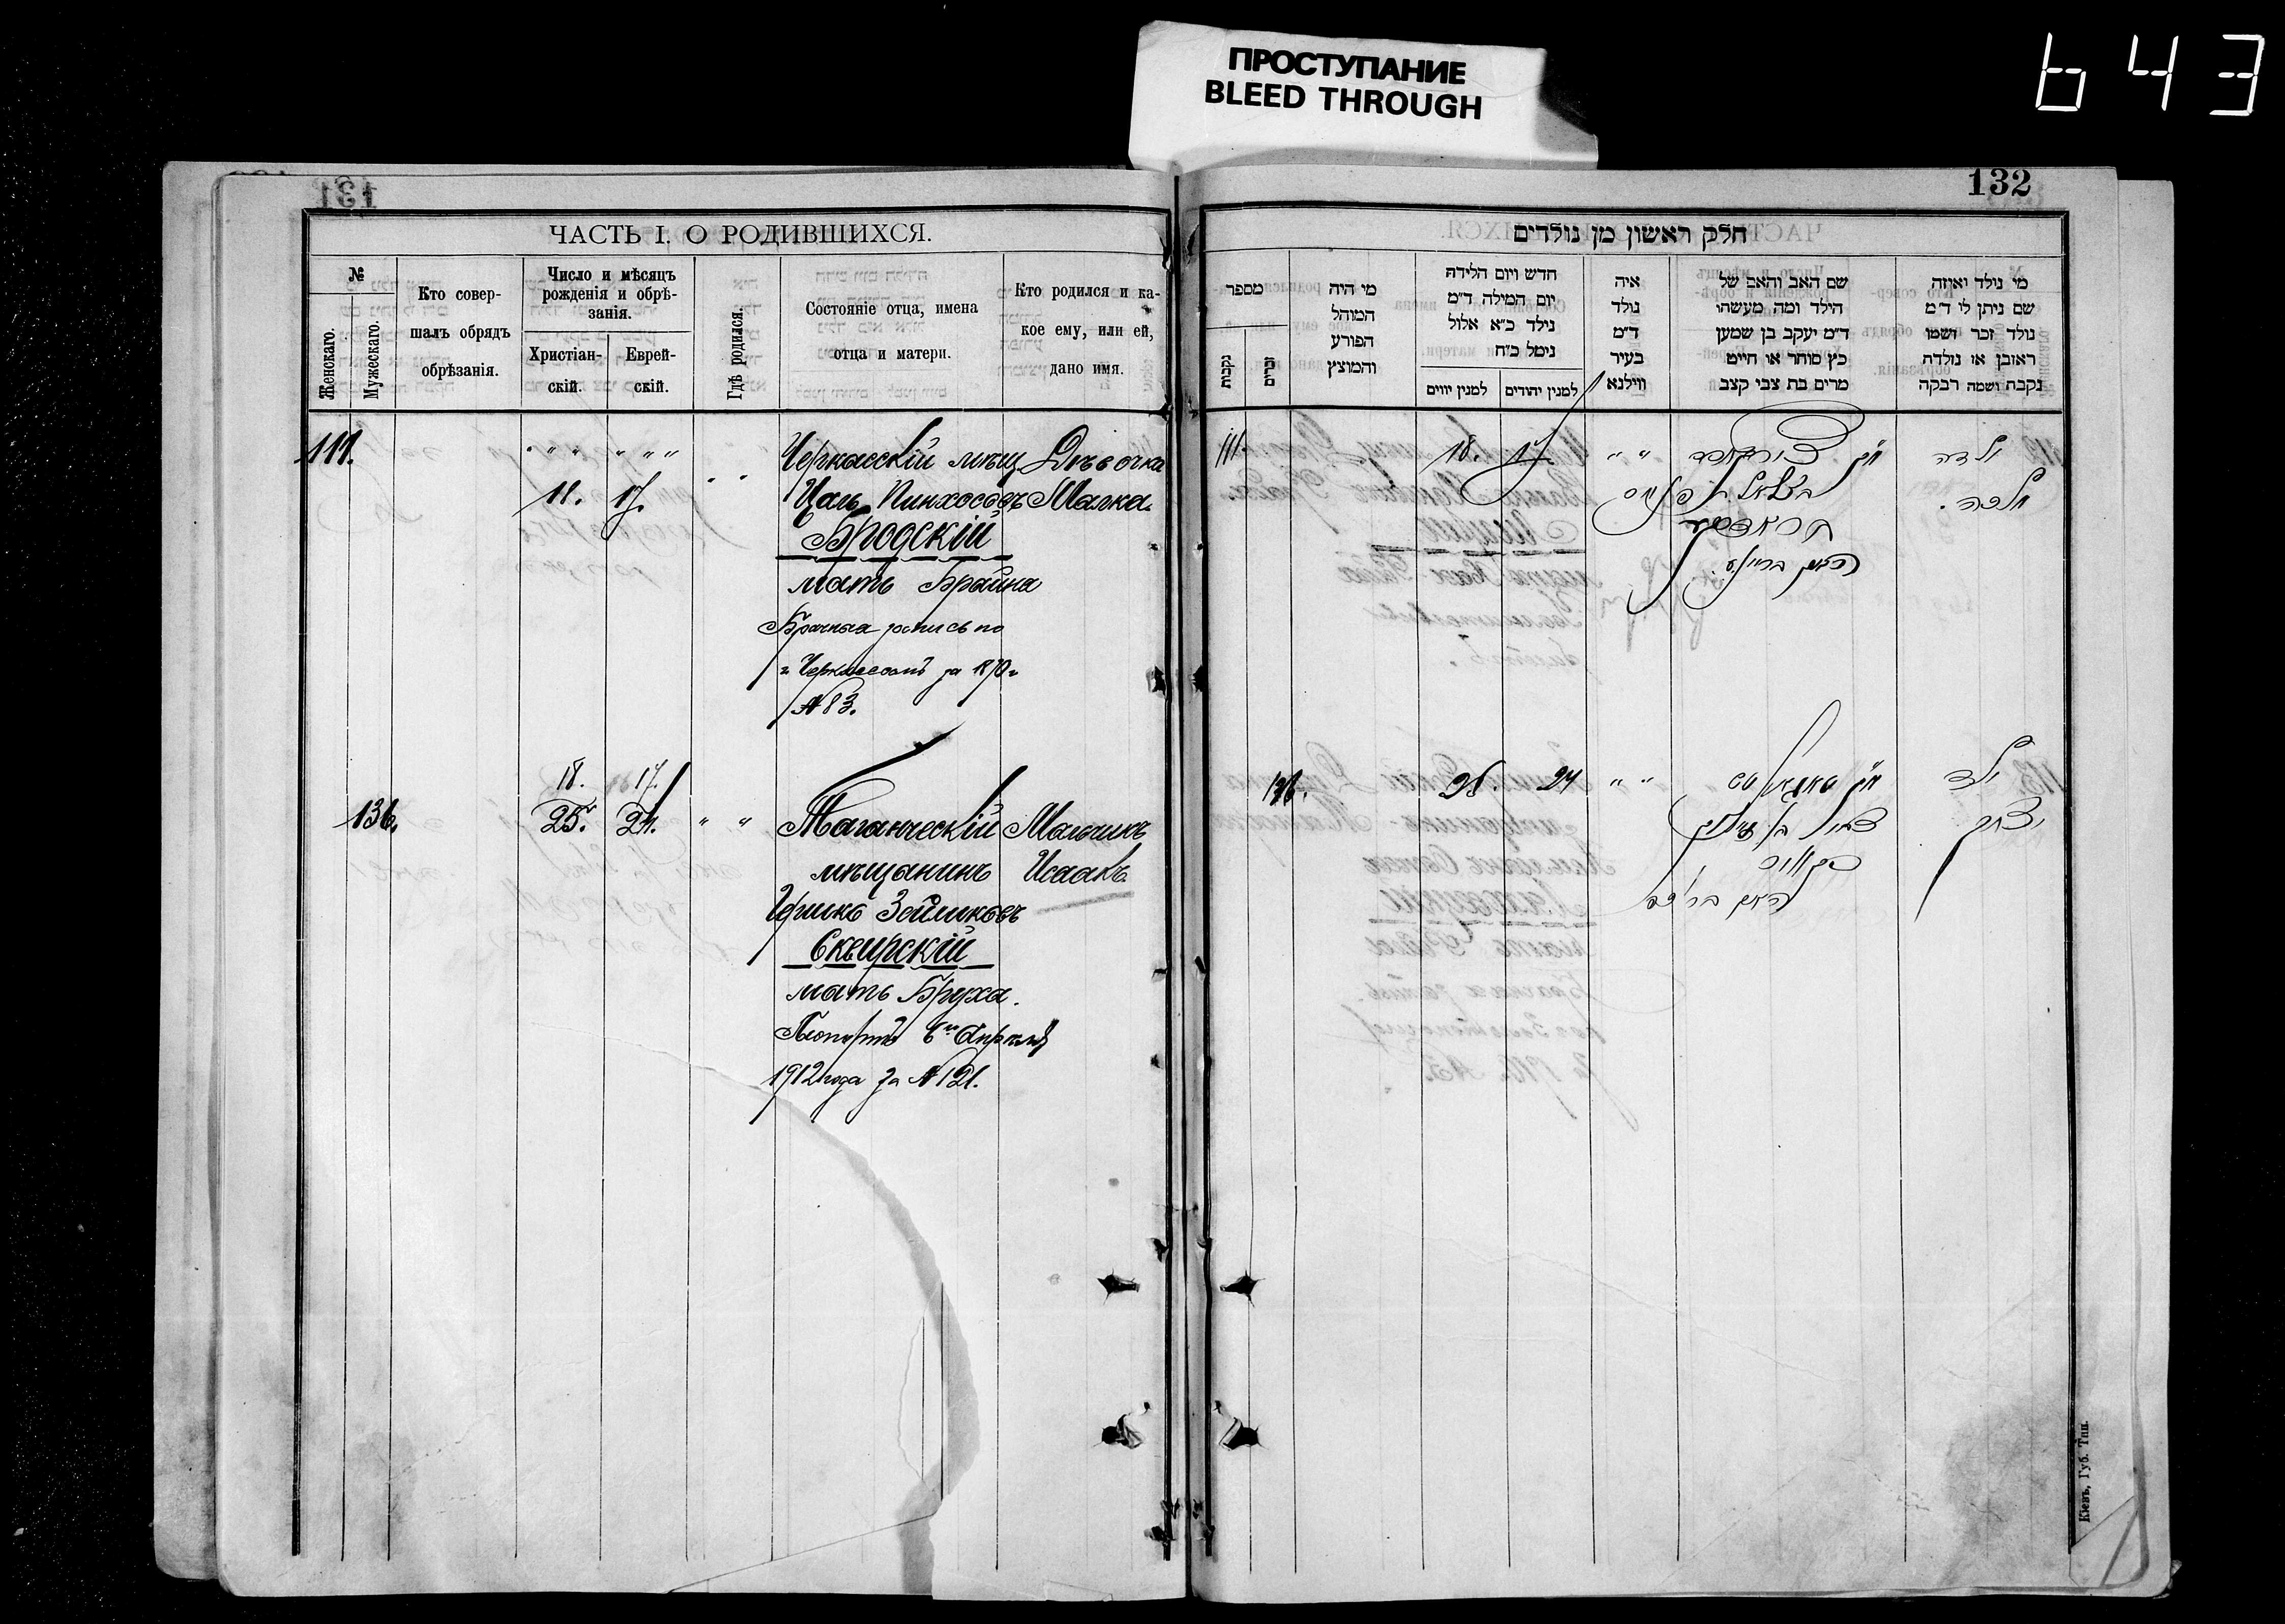 ПРОСТУПАНИЕ
BLEED THROUGH
643
132
131
ЧАСТЬ I. О РОДИВШИХСЯ.
№
Женскаго.
Мужескаго.
Кто совер-
шалъ обрядъ
обрѣзанія.
Число и мѣсяцъ
рожденія и обрѣ-
занія.
Христіан-
скій.
Еврей-
скій.
Гдѣ родился.
Состояніе отца, имена
отца и матери.
Кто родился и ка-
кое ему, или ей,
дано имя.
111.
" " "
" " "
18.
17.
" "
Черкасскій мѣщ
Цаль Пинхосовъ
Бродскій
мать Брайна
Брачная запись по
г. Черкассамъ за 1870 г
№ 83.
Дѣвочка
Малка.
136.
18.
17.
25.
24.
" "
Таганческій
мѣщанинъ
Гершко Зейликовъ
Сквирскій
мать Бруха.
Паспортъ Апрѣля
1912 года за № 121.
Мальчикъ
Исаакъ.
חלק ראשון מן נולדים
מספר
נקבות
זכרים
מי היה
המוהל
הפורע
והמוצץ
חדש ויום הלידה
יום המילה ד״מ
נילד כ״א אלול
נימל כ״ח
למנין יווים
למנין יהודים
איה
נולד
ד״מ
בעיר
ווילנא
שם האב והאם של
הילד ומה מעשהו
ד״מ יעקב בן שמען
כץ סוחר או חייט
מרים בת צבי קצב
מי נולד ואיזה
שם ניתן לי ד״מ
נולד זכר ושמו
ראובן או נולדת
נקבת ושמה רבקה
111.
18.
17.
" "
בצלאל פנחס
בראדסקי
ילדה
מלכה.
136.
25.
24
" "
ילד
יצחק
Кіевъ, Губ. Тип.